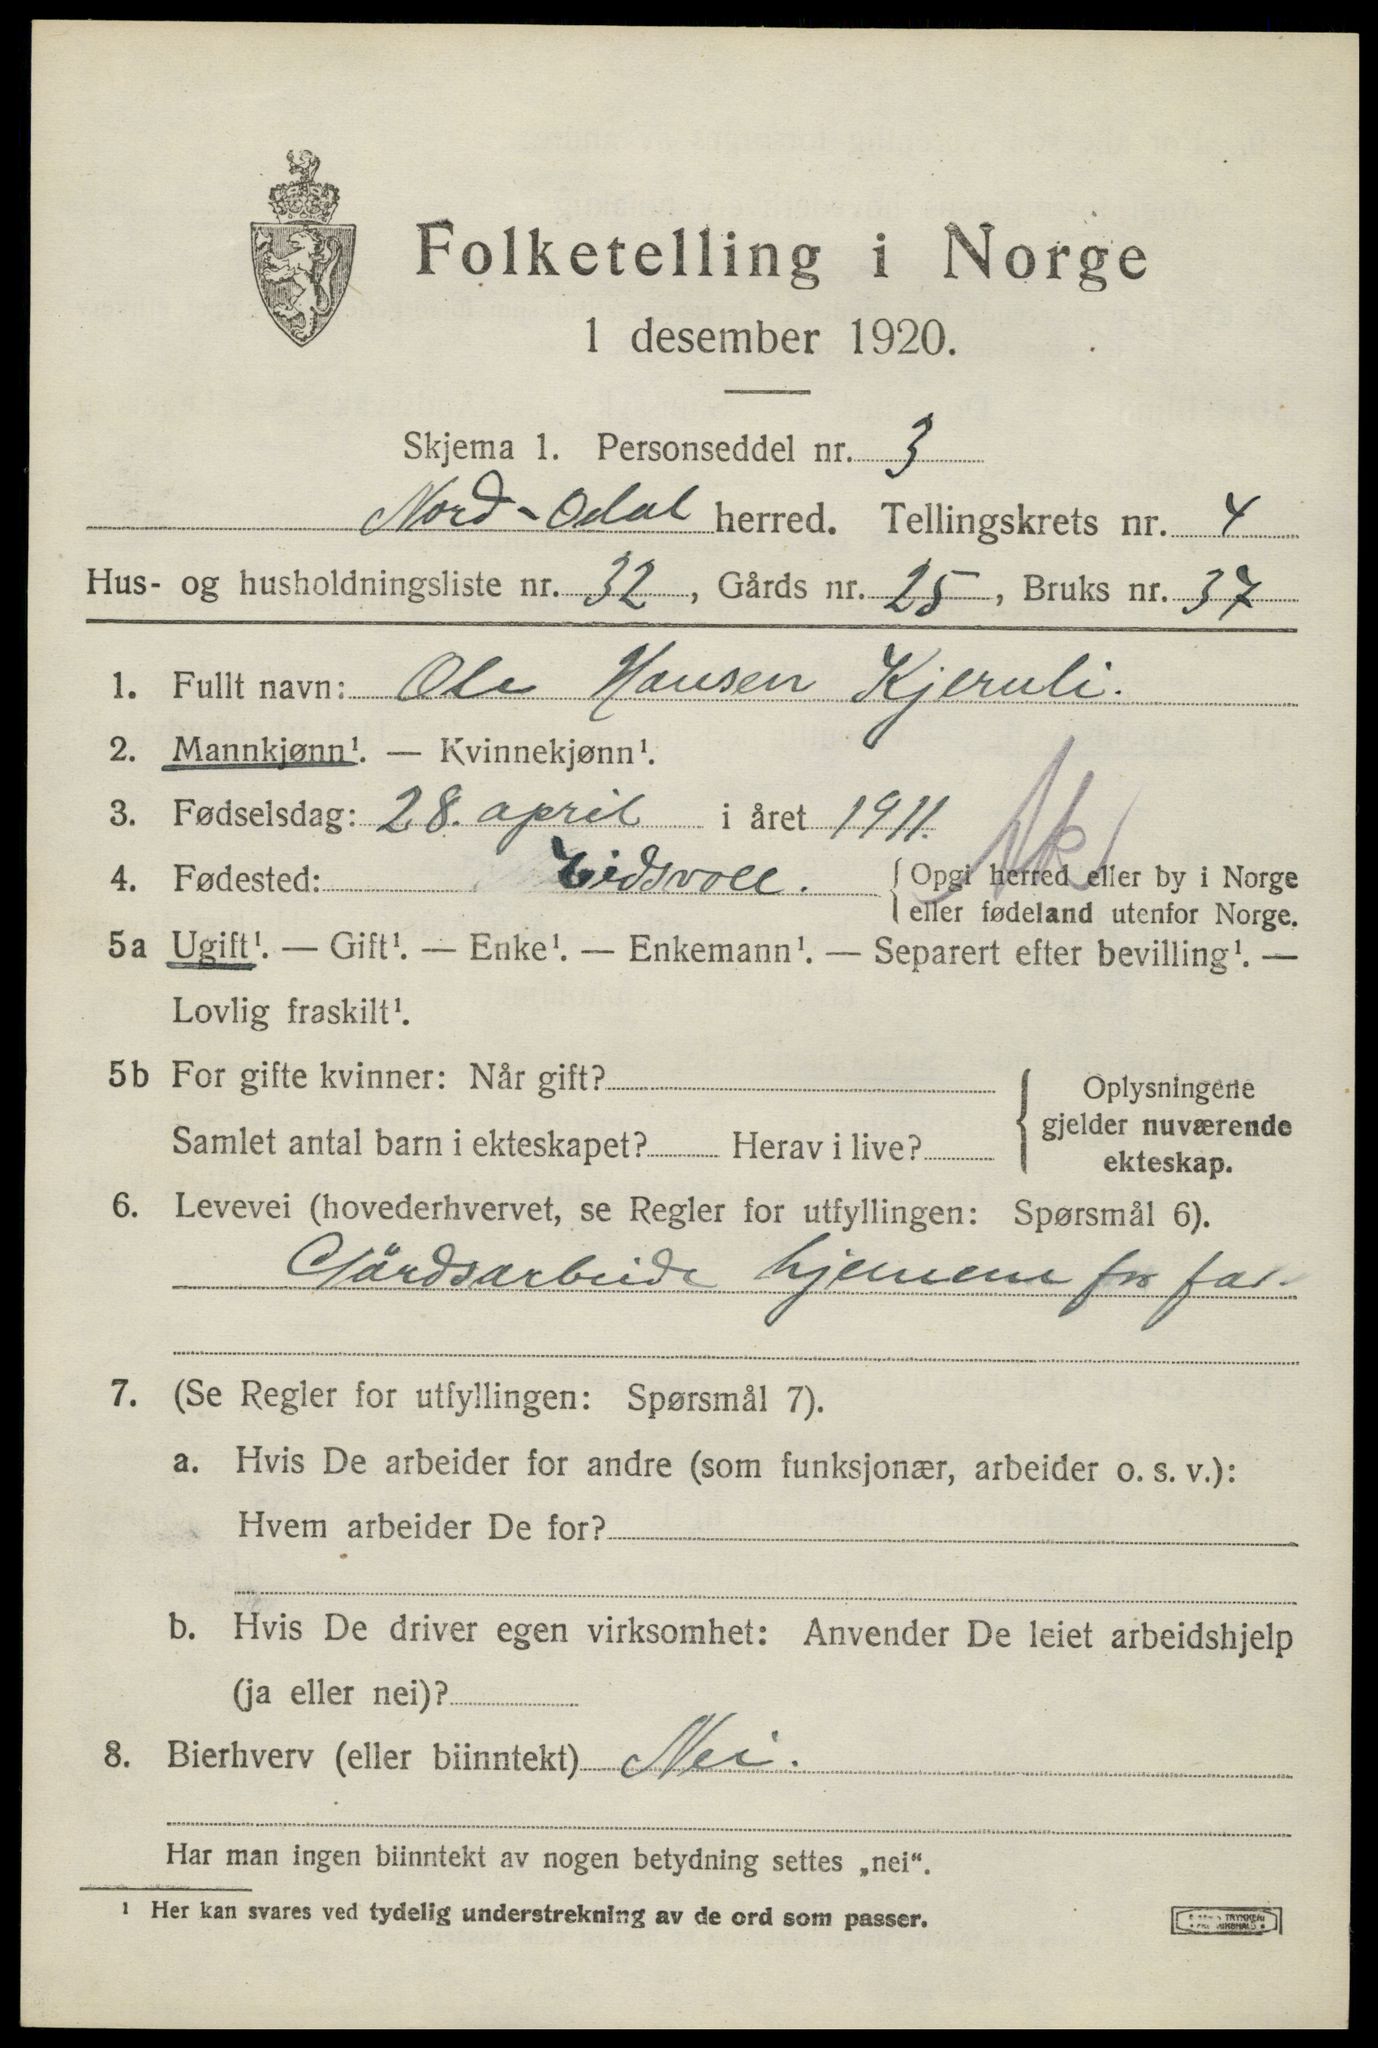 Folketelling i Norge
1 desember 1920.
Skjema 1. Personseddel nr. 3
Nord-Odal herred. Tellingskrets nr. 4
Hus- og husholdningsliste nr. 32, Gårds nr. 25, Bruks nr. 37
1. Fullt navn: Ole Hansen Kjeruli.
2. Mannkjønn¹. — Kvinnekjønn¹.
3. Fødselsdag: 28. april i året 1911.
4. Fødested: Eidsvoll. { Opgi herred eller by i Norge
eller fødeland utenfor Norge.
Ak
5a Ugift¹. — Gift¹. — Enke¹. — Enkemann¹. — Separert efter bevilling¹. —
Lovlig fraskilt¹.
5b For gifte kvinner: Når gift?
Samlet antal barn i ekteskapet? Herav i live?
{ Oplysningene
gjelder nuværende
ekteskap.
6. Levevei (hovederhvervet, se Regler for utfyllingen: Spørsmål 6).
Gårdsarbeide hjemme for far
7. (Se Regler for utfyllingen: Spørsmål 7).
a. Hvis De arbeider for andre (som funksjonær, arbeider o. s. v.):
Hvem arbeider De for?
b. Hvis De driver egen virksomhet: Anvender De leiet arbeidshjelp
(ja eller nei)?
8. Bierhverv (eller biinntekt) Nei.
Har man ingen biinntekt av nogen betydning settes „nei".
¹ Her kan svares ved tydelig understrekning av de ord som passer.